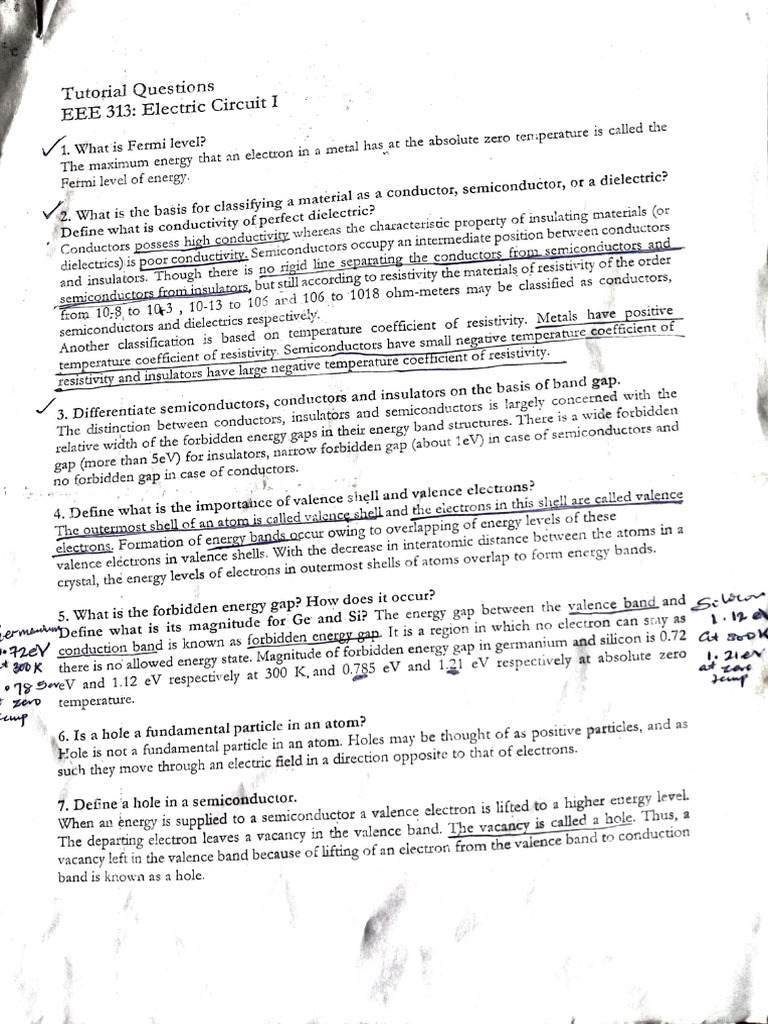 Tutorial Questions
EEE 313: Electric Circuit I
1. What is Fermi level?
The maximum energy that an electron in a metal has at the absolute zero temperature is called the
Fermi level of energy.
2. What is the basis for classifying a material as a conductor, semiconductor, or a dielectric?
Define what is conductivity of perfect dielectric?
Conductors possess high conductivity whereas the characteristic property of insulating materials (or
dielectrics) is poor conductivity. Semiconductors occupy an intermediate position between conductors
and insulators. Though there is no rigid line separating the conductors from semiconductors and
semiconductors from insulators, but still according to resistivity the materials of resistivity of the order
from 10-8 to 10-3 , 10-13 to 106 and 106 to 1018 ohm-meters may be classified as conductors,
semiconductors and dielectrics respectively.
Another classification is based on temperature coefficient of resistivity. Metals have positive
temperature coefficient of resistivity. Semiconductors have small negative temperature coefficient of
resistivity and insulators have large negative temperature coefficient of resistivity.
3. Differentiate semiconductors, conductors and insulators on the basis of band gap.
The distinction between conductors, insulators and semiconductors is largely concerned with the
relative width of the forbidden energy gaps in their energy band structures. There is a wide forbidden
gap (more than 5eV) for insulators, narrow forbidden gap (about 1eV) in case of semiconductors and
no forbidden gap in case of conductors.
4. Define what is the importance of valence shell and valence electrons?
The outermost shell of an atom is called valence shell and the electrons in this shell are called valence
electrons. Formation of energy bands occur owing to overlapping of energy levels of these
valence electrons in valence shells. With the decrease in interatomic distance between the atoms in a
crystal, the energy levels of electrons in outermost shells of atoms overlap to form energy bands.
5. What is the forbidden energy gap? How does it occur?
Define what is its magnitude for Ge and Si? The energy gap between the valence band and
conduction band is known as forbidden energy gap. It is a region in which no electron can stay as
there is no allowed energy state. Magnitude of forbidden energy gap in germanium and silicon is 0.72
eV and 1.12 eV respectively at 300 K, and 0.785 eV and 1.21 eV respectively at absolute zero
temperature.
Silicon
1.12 eV
at 300K
1.21ev
at zero
temp
300K
zero
6. Is a hole a fundamental particle in an atom?
Hole is not a fundamental particle in an atom. Holes may be thought of as positive particles, and as
such they move through an electric field in a direction opposite to that of electrons.
7. Define a hole in a semiconductor.
When an energy is supplied to a semiconductor a valence electron is lifted to a higher energy level.
The departing electron leaves a vacancy in the valence band. The vacancy is called a hole. Thus, a
vacancy left in the valence band because of lifting of an electron from the valence band to conduction
band is known as a hole.